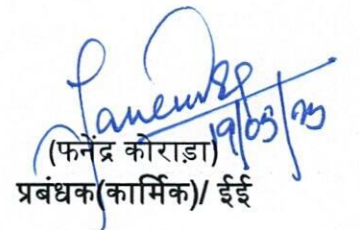 19/05/25
(फनेंद्र कोराड़ा)
प्रबंधक(कार्मिक)/ ईई